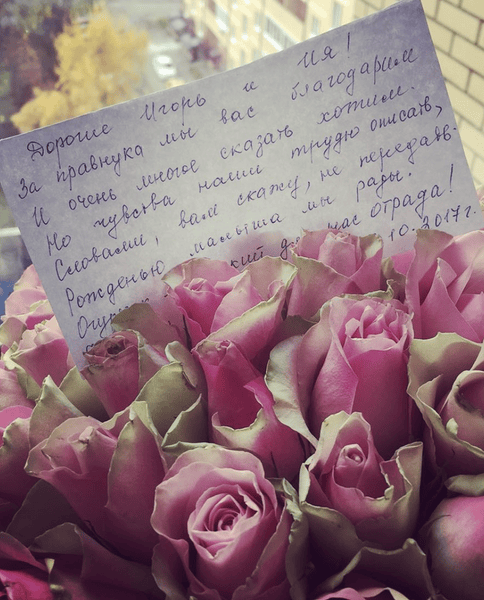 Дорогие Игорь и Ия!
За правнука мы вас благодарим
И очень многое сказать хотим.
Но чувства наши трудно описать,
Словами, вам скажу, не передать.
Рожденью малыша мы рады.
нас отрада!
10.2017г.